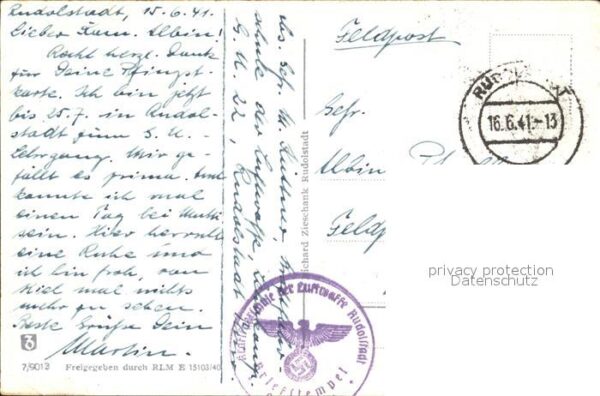 Rudolstadt, 15.6.41.
Lieber Kam. Albin!
Recht herzl. Dank
für Deine Pfingst-
karte. Ich bin jetzt
bis 25.7. in Rudol-
stadt zum S.U.-
Lehrgang. Mir ge-
fällt es prima. Und
konnte ich mal
einen Tag bei Mutti
sein. Hier herrscht
eine Ruhe und
ich bin froh, von
Kiel mal nichts
mehr zu sehen.
Beste Grüße Dein
Martin.
Abs. Gefr. M.
schule der Luftwaffe
Rudolstadt
Richard Zieschank Rudolstadt
Feldpost
Gefr.
Albin
Feldp
RUDOLSTADT
16.6.41.-13
privacy protection
Datenschutz
Kraftfahrschule der Luftwaffe Rudolstadt
Briefstempel
7/9013 Freigegeben durch RLM E 15103/40